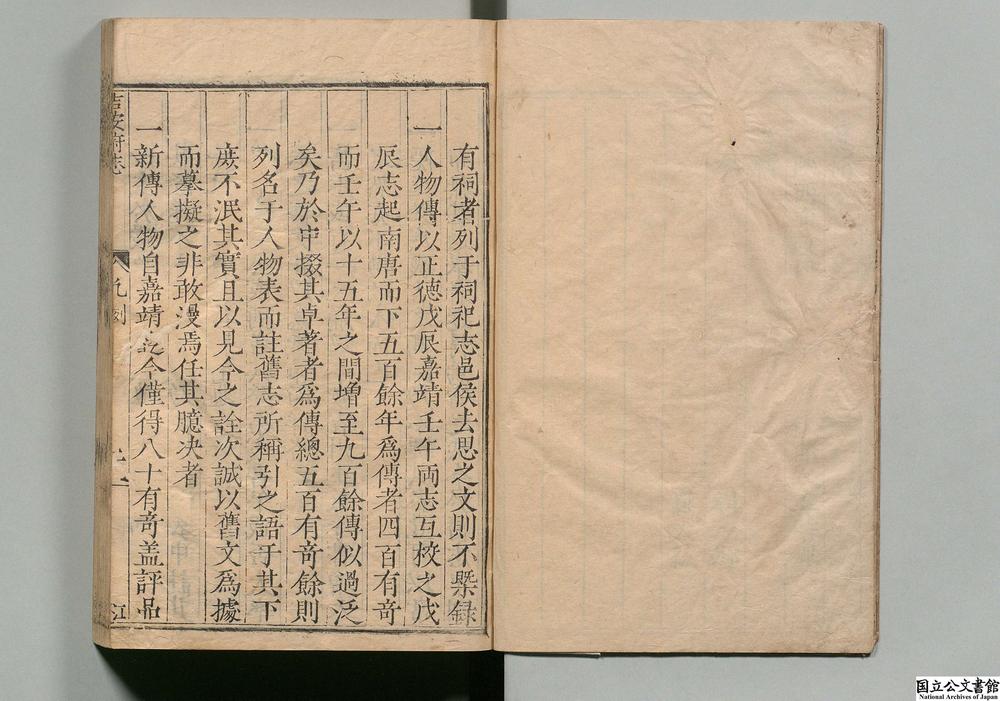 有祠者列于祠祀志邑侯去思之文則不槩録
一人物傳以正德戊辰嘉靖壬午両志互校之戊
辰志起南唐而下五百餘年爲傳者四百有奇
而壬午以十五年之間増至九百餘傳似過泛
矣乃於中掇其卓著者爲傳總五百有奇餘則
列名于人物表而註舊志所稱引之語于其下
庶不泯其實且以見今之詮次誠以舊文爲據
而摹擬之非敢漫焉任其臆决者
一新傳人物自嘉靖迄今僅得八十有奇盖評品
吉安府志
凡例
江
国立公文書館
National Archives of Japan